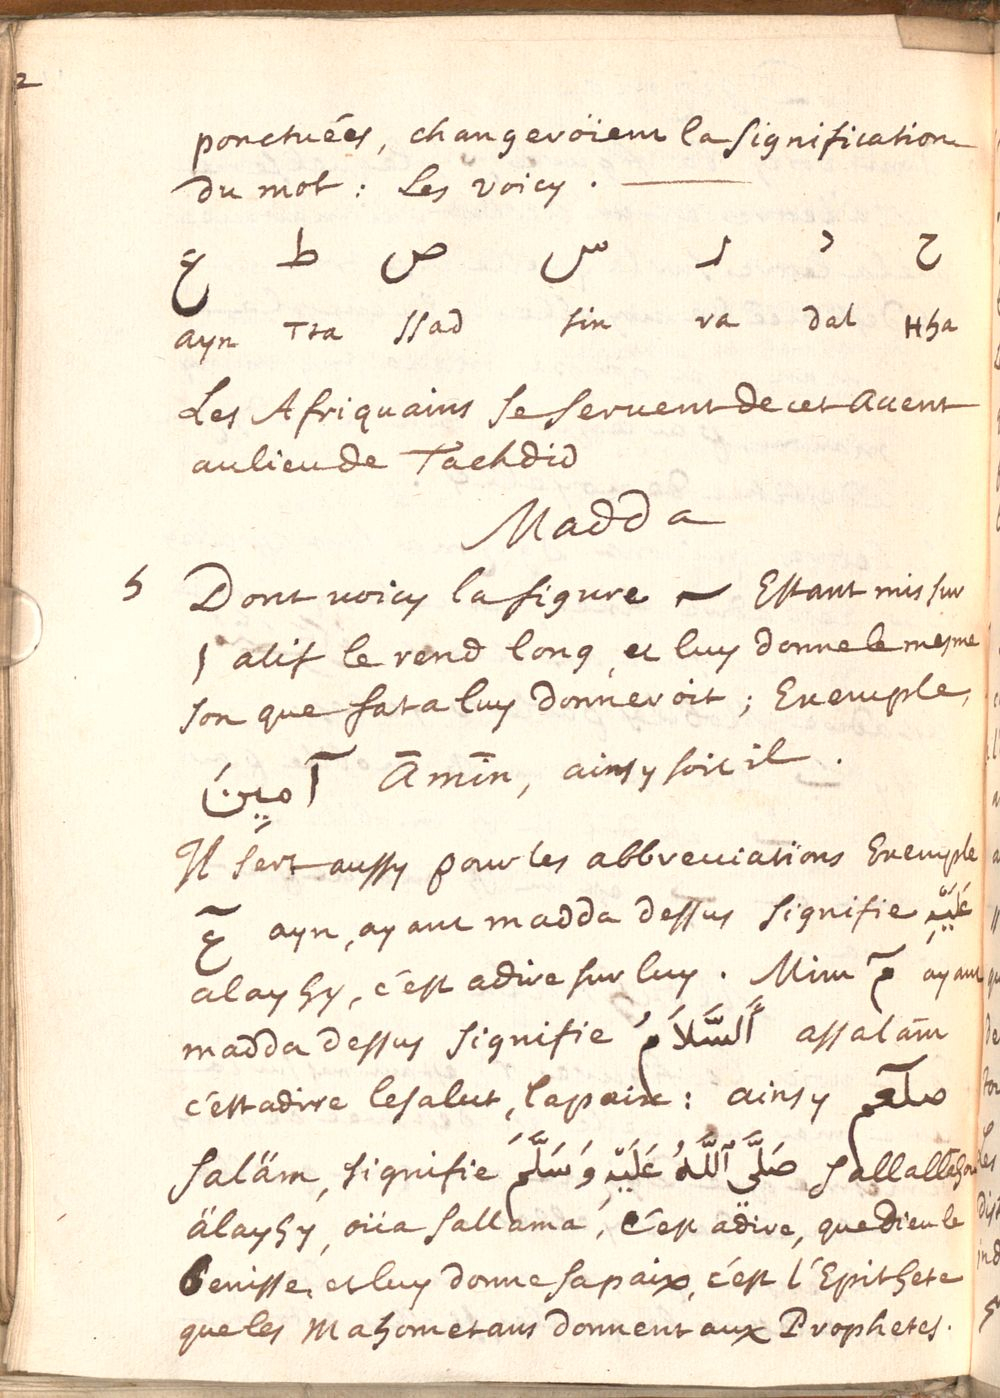 2
ponctuées, changeroïent la signification
du mot : Les voicy .
ع ط ص س ر د ح
ayn Tta ssad sin ra dal Hha
Les Afriquains se servent de cet accent
au lieu de Tachdid
Madda
5 Dont voicy la figure ~ Estant mis sur
ا alif le rend long, et luy donne le mesme
son que fata luy donneroit ; Exemple,
آمِينَ Āmīn, ainsy soit il .
Il sert aussy pour les abbreviatïons Exemple
عۤ ayn, ayant madda dessus signifie عَلَيْهِ
alayhy, c'est adire sur luy . Mim مۤ ayant
madda dessus signifie اَلسَّلَامُ assalām
c'est adire le salut, la paix : ainsy صلعم
saläm, signifie صَلَّى ٱللَّهُ عَلَيْهِ وَسَلَّمَ sallallahou
älayhy, oüa sallama, c'est adire, que Dieu le
benisse, et luy donne sa paix, c'est l'Epithete
que les Mahometans donnent aux Prophetes.